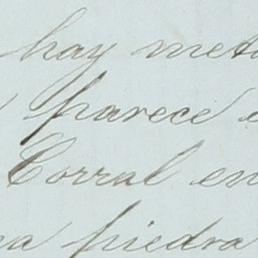 hay meta
parece e
Corral en
na piedra